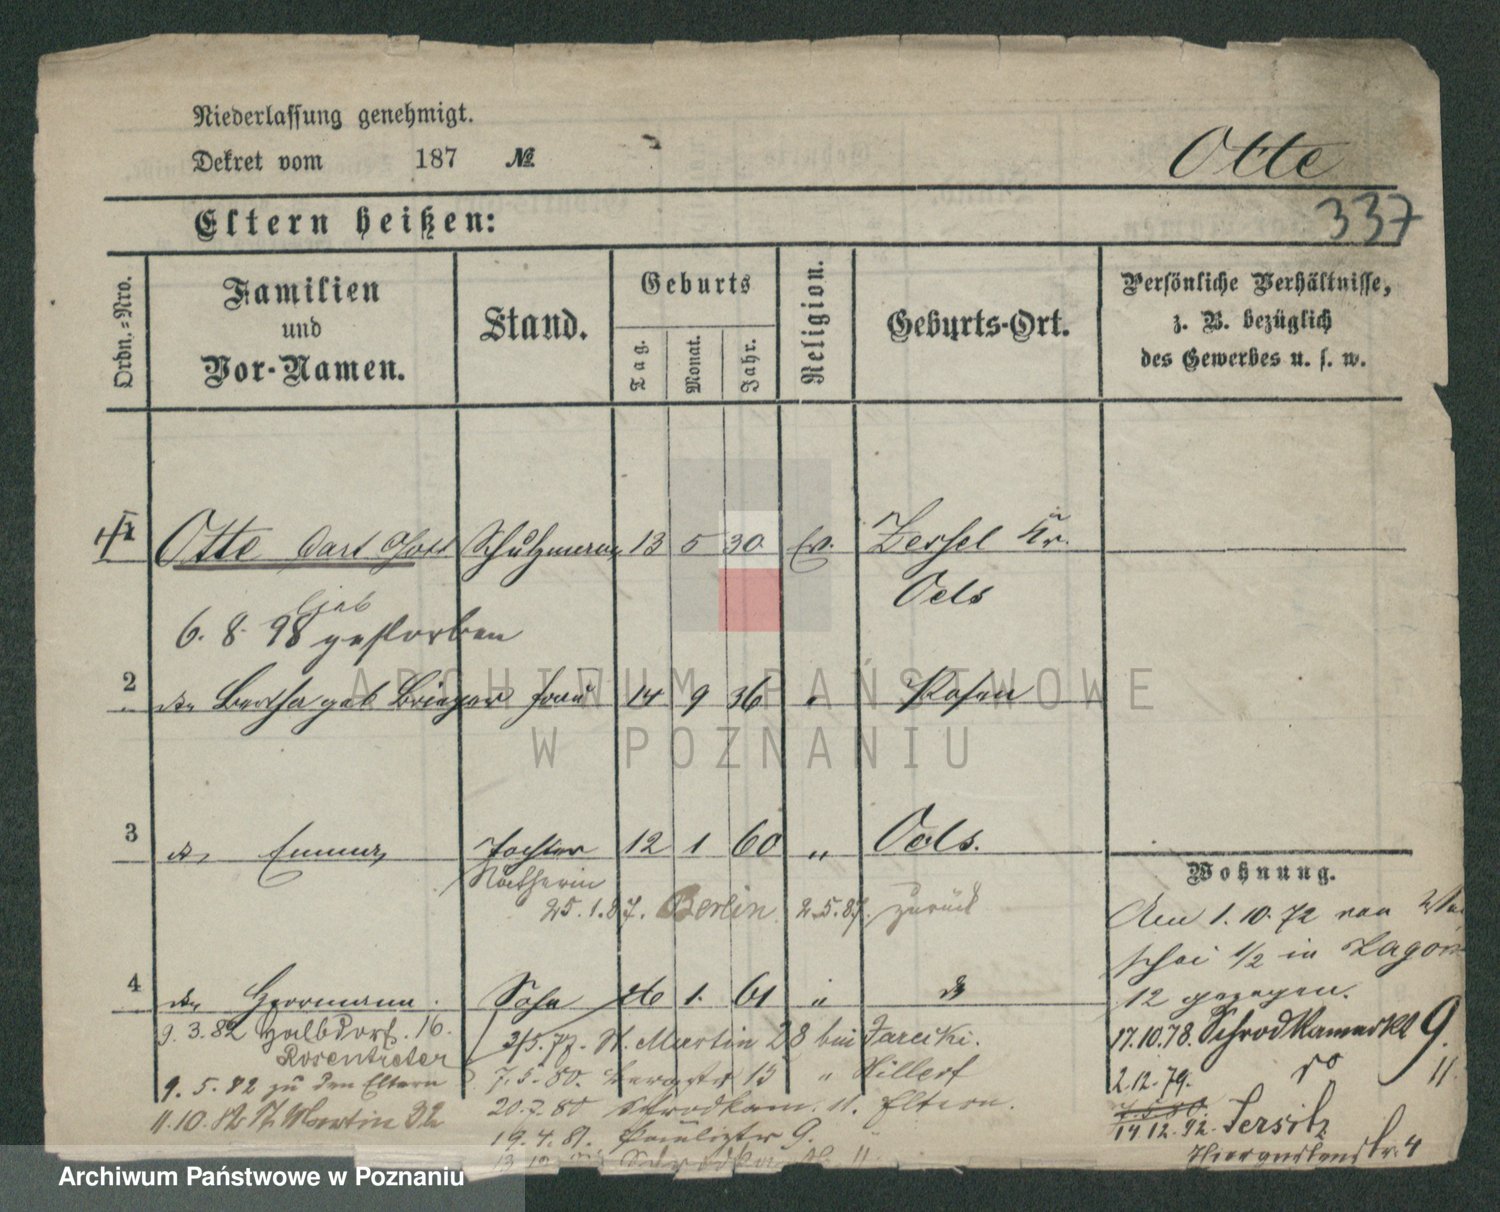 Niederlassung genehmigt.
Dekret vom 187 №
Otte
337
Eltern heißen:
Ordn.-Nro.
Familien
und
Vor-Namen.
Stand.
Geburts
Tag.
Monat.
Jahr.
Religion.
Geburts-Ort.
Persönliche Verhältnisse,
z. B. bezüglich
des Gewerbes u. s. w.
1 Otte Carl Gott Schutzmann 13 5 30 Ev. Zessel Kr.
lieb Oels
6. 8. 98 gestorben
2 Bertha geb Brieger Frau 14 9 36 " Posen
3 Emma Tochter 12 1 60 " Oels.
Nätherin
25. 1. 87. Berlin 2.5.87. zurück
Wohnung.
Am 1. 10. 72 von
1/2 in
12 gezogen.
4 Herrmann. Sohn 26 1. 61 "
9. 3. 82 Halbdorf. 16.
Rosentreter
9. 5. 82 zu den Eltern
11. 10. 82 St Martin 32
3/5. 77. St. Martin 28 bei Jarecki.
7. 5. 80. 15 " Hillert
20. 7. 80 Schrodkam. 11. Eltern.
19. 4. 81. 9.
17. 10. 78. Schrodkamarkt 9.
2. 12. 79. 11
14 12. 92. Jersitz
4
ARCHIWUM PAŃSTWOWE
W POZNANIU
Archiwum Państwowe w Poznaniu